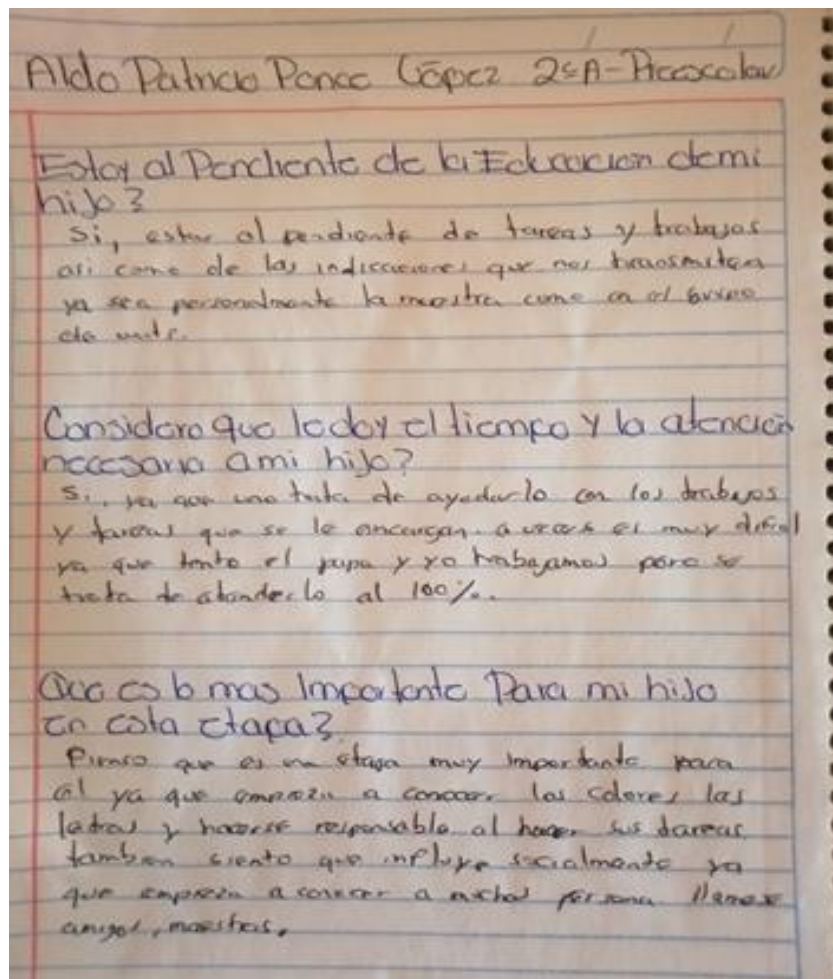 Aldo Patricio Ponce López 2ºA-Preescolar
Estoy al Pendiente de la Educacion de mi
hijo?
Si, estoy al pendiente de tareas y trabajos
asi como de las indicaciones que nos transmiten
ya sea personalmente la maestra como en el
de
Considero que le doy el tiempo y la atención
necesaria a mi hijo?
Si, ya que uno trata de ayudarlo con los trabajos
y tareas que se le encargan. a veces es muy dificil
ya que tanto el papa y yo trabajamos pero se
trata de atenderlo al 100%.
Que es lo mas Importante Para mi hijo
En esta etapa?
Pienso que es una etapa muy importante para
el ya que empieza a conocer los colores las
letras y hacerse responsable al hacer sus tareas
tambien siento que influye socialmente ya
que empieza a conocer a muchas persona llamese
amigos, maestras.